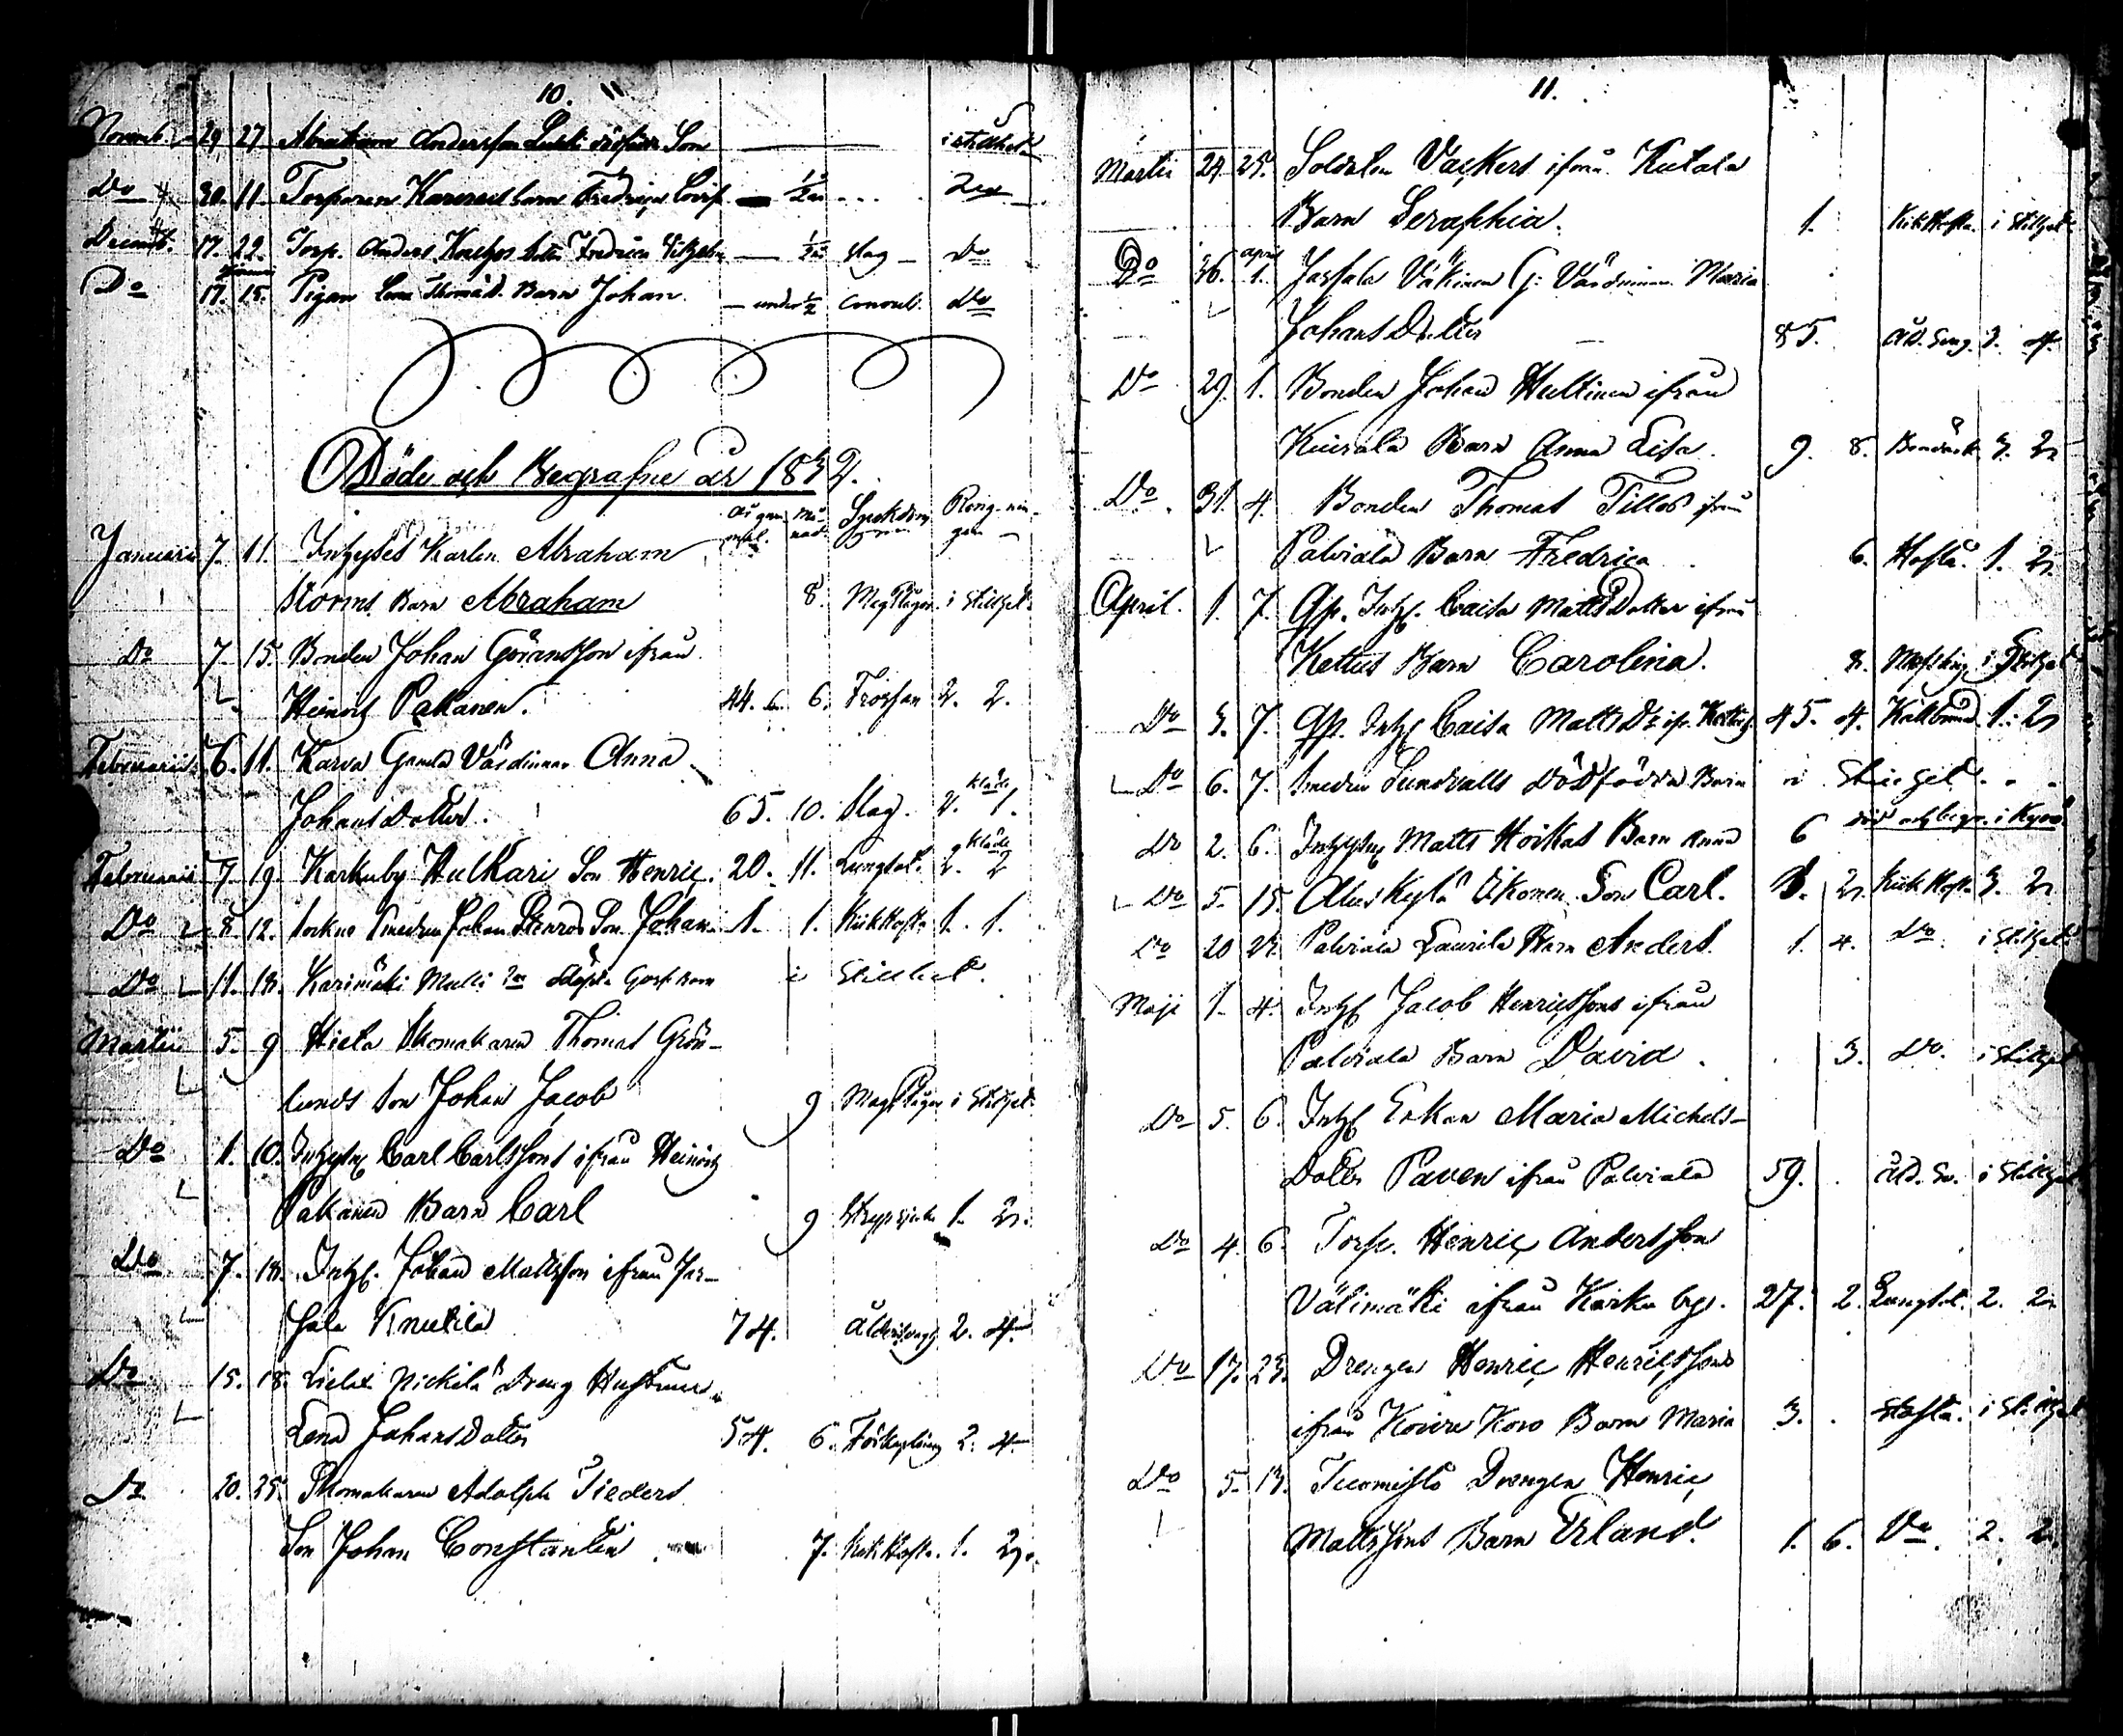 10.
Novemb. 29 27 Abraham Andersson Son i stillhet
Do 30. 11. Torparen barn Fredrica Lovisa 1/2
Decemb. 17. 22. Torp. Anders Fredrica 1/2 slag Do
Do 17. 15. Pigan Lena Thomæd. Barn Johan under 1/2 convul. Do
Döde och Begrafne år 1832.
Januarii 7. 11. Karlen Abraham
Storms Barn Abraham 8. i Stillhet
Do 7. 15. Bonden Johan Göransson ifrån
Heinois Pakanen. 44. 6. Frossan 2. 2.
Februarii 6. 11. Karva Gamla Värdinnan Anna
Johans Dotter. 65. 10. Slag. 2. Kläde 1.
Februarii 7. 19. Karkuby Hulkari Son Henric. 20. 11. Lungsot. 2. Kläde 2
Do 8. 12. Smeden Johan Son Johan 1. 1. Kikhosta 1. 1.
Do 11. 18. Karimäki i Stillhet.
Martii 5. 9 Hiela Skomakaren Thomas Grön-
lunds Son Johan Jacob 9 i Stillhet
Do 1. 10. Carl Carlssons ifrån Heinois
Pakanen Barn Carl 9 Strypsjuka 1. 2.
Do 7. 18. Inhs. Johan Mattsson ifrån Jas-
sala Knutila 74. Ålderdomsvagh. 2. 4.
Do 15. 18. Nickilä Dreng Hustrun
Lena Johans Dotter 54. 6. Förkylning 2. 4
Do 20. 25. Skomakaren Adolph Tieders
Son Johan Constantin 7. Kikhosta. 1. 2.
11.
Martii 24 25. Soldaten Vackers ifrån Kutala
Barn Seraphia. 1. Kikhosta. i Stillhet
Do 26. april 1. Jassala Väkinen G: Värdinnan Maria
Johans Dotter 85. 3. 4.
Do 29. 1. Bonden Johan Hultinen ifrån
Kiurala Barn Anna Lisa. 9. 8. 3. 2
Do 31. 4. Bonden Thomas Tillos ifrån
Palviala Barn Fredrica 6. Hosta. 1. 2.
April. 1. 7. Caisa Matts Dotter ifrån
Kettus Barn Carolina. 8. Messling i Stillhet
Do 3. 7. Caisa Matts Dr ifr. Kettus 45. 4. Kallbrand 1. 2
Do 6. 7. Smeden Sundvalls Dödfödda Barn i Stillhet.
Do 2. 6. Matts Hoikas Barn Anna 6 död och begr. i Kyrö
Do 5. 15. Aluskylä Ikonen Son Carl. 1. 2. Kikhosta 3. 2
Do 20 22. Palviala Laurila Barn Anders. 1. 4. Do i Stillhet
Maji 1. 4. Inhs Jacob Henricssons ifrån
Palviala Barn David. 3. Do. i Stillhet
Do 5. 6. Inhs Enkan Maria Michels-
Dotter Paven ifrån Palviala 59. i Stillhet
Do 4. 6. Torp. Henric Andersson
Välimäki ifrån Karku by. 27. 2. Lungsot. 2. 2
Do 17. 23. Drengen Henric Henricssons
ifrån Koivu Koro Barn Maria 3. Hosta. i Stillhet
Do 5. 13. Tuomisto Drengen Henric
Mattssons Barn Erland. 1. 6. Do. 2. 2.